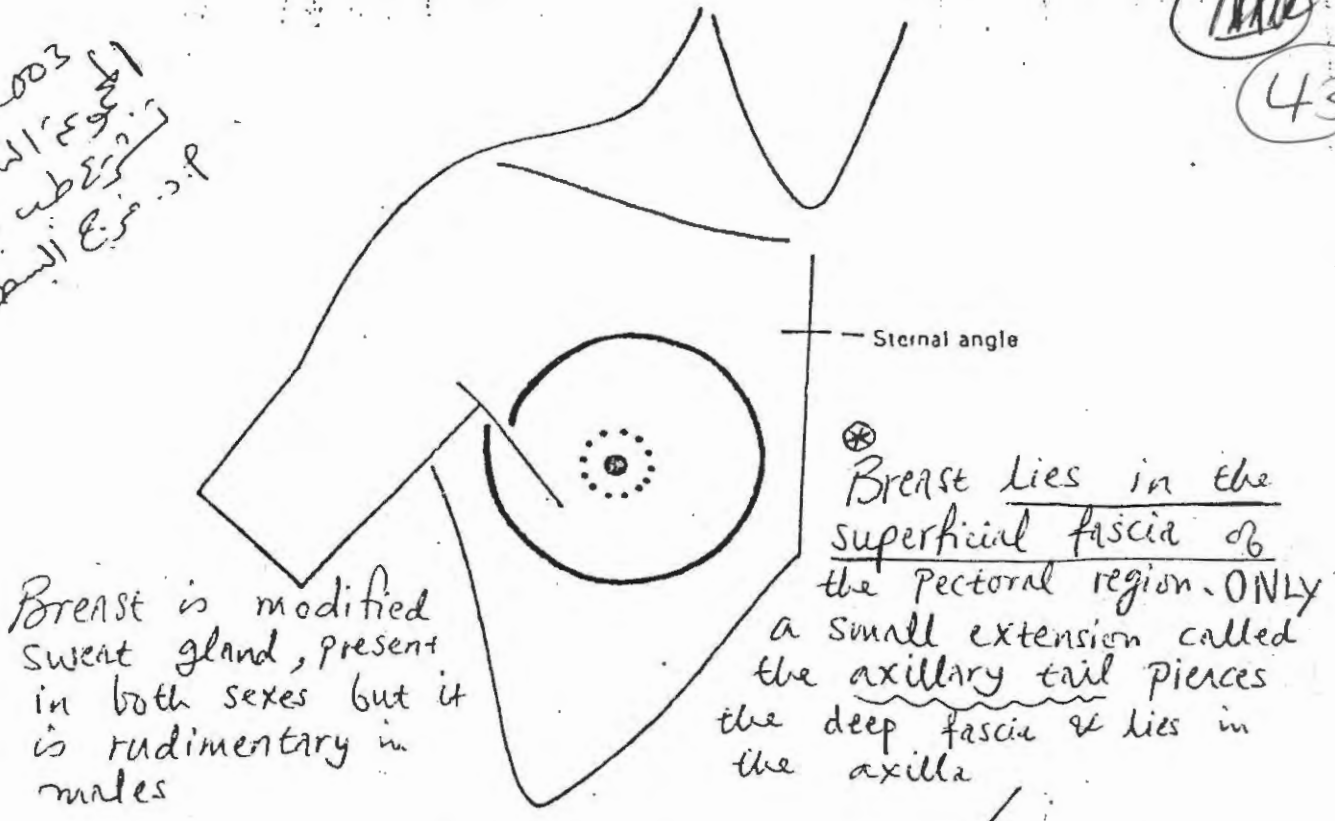 43
Sternal angle
Breast lies in the
superficial fascia of
the Pectoral region. ONLY
a small extension called
the axillary tail pierces
the deep fascia & lies in
the axilla
Breast is modified
sweat gland, present
in both sexes but it
is rudimentary in
males